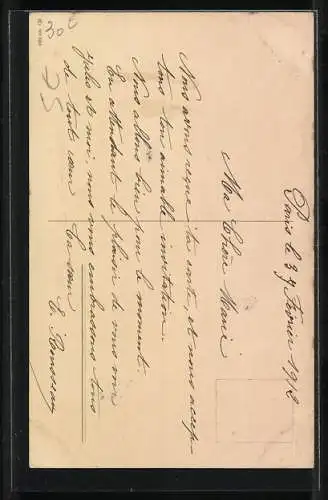 Paris le 3 Février 1912
Ma Chère Marie
Nous avons reçue ta carte, et nous accep-
tons ton aimable invitation.
Nous allons bien pour le moment.
En attendant le plaisir de vous voir
Jules et moi, nous vous embrassons tous
de tout cœur
Ta sœur
E. Rousseau
30
25